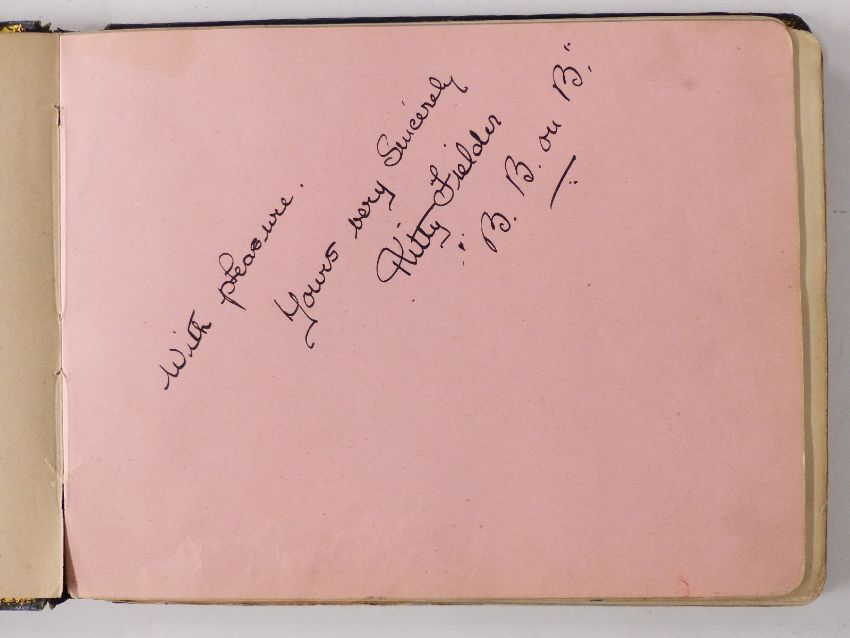 With pleasure.
Yours very Sincerely
Kitty Fielder
"B. B. on B."